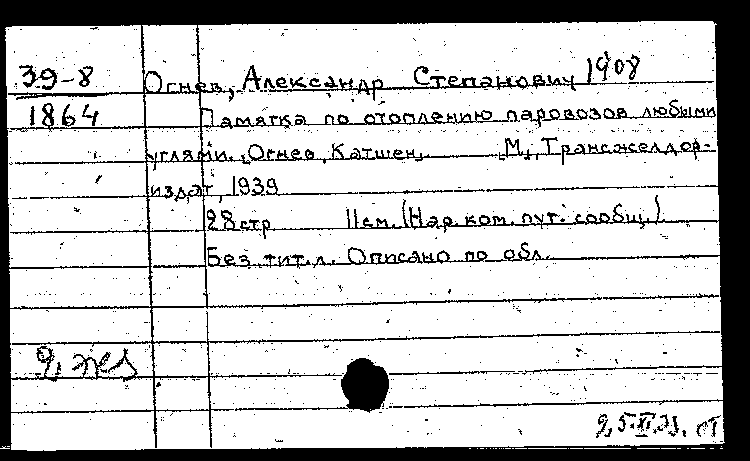 39-8 Огнев, Александр Степанович 1908
1864 Памятка по отоплению паровозов любыми
углями. Огнев, Катшен. М., Трансжелдор-
издат, 1939
28стр 11см. (Нар. ком. пут. сообщ.)
Без тит. л. Описано по обл.